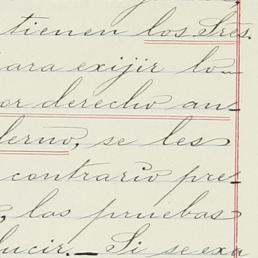 tienen los Sres.
para exijir lo-
or derecho an-
terno, se les
contrario pre-
, las pruebas
lucir. — Si se exa